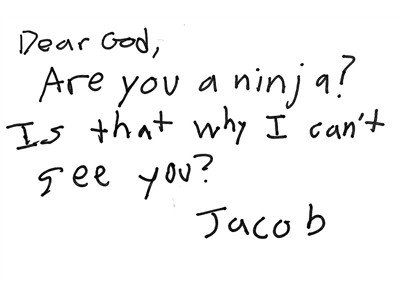 Dear God,
Are you a ninja?
Is that why I can't
see you?
Jacob